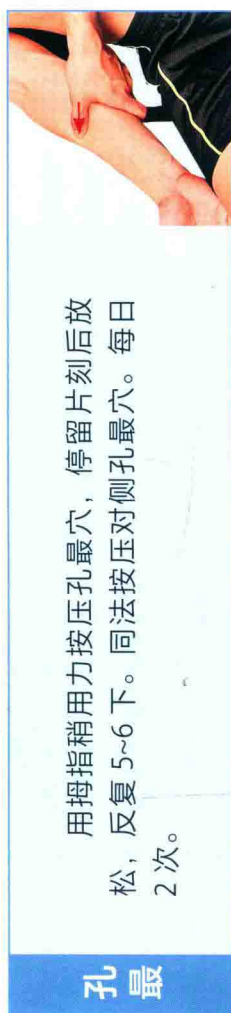 孔
最
用拇指稍用力按压孔最穴，停留片刻后放
松，反复 5~6 下。同法按压对侧孔最穴。每日
2 次。